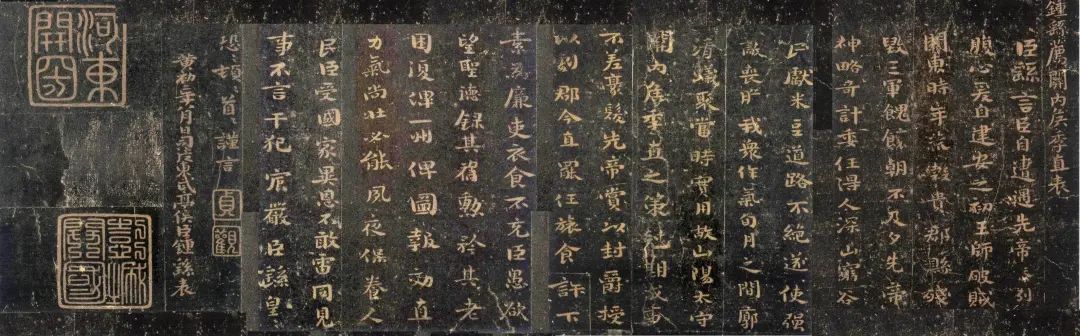 鍾繇薦關內侯季直表
臣繇言臣自遭遇先帝忝列
腹心爰自建安之初王師破賊
關東時年荒穀貴郡縣殘
毀三軍餽饟朝不及夕先帝
神略奇計委任得人深山窮谷
民獻米豆道路不絕遂使強
敵喪膽我衆作氣旬月之間廓
清蟻聚當時實用故山陽太守
關內侯季直之策剋期成事
不差豪髮先帝賞以封爵授
以劇郡今直罷任旅食許下
素為廉吏衣食不充臣愚欲
望聖德錄其舊勳矜其老
困復俾一州俾圖報効直
力氣尚壯必能夙夜保養人
民臣受國家異恩不敢雷同見
事不言干犯宸嚴臣繇皇
恐頓首謹言
貞觀
黃初二年八月日司徒東武亭侯臣鍾繇表
河東
開國